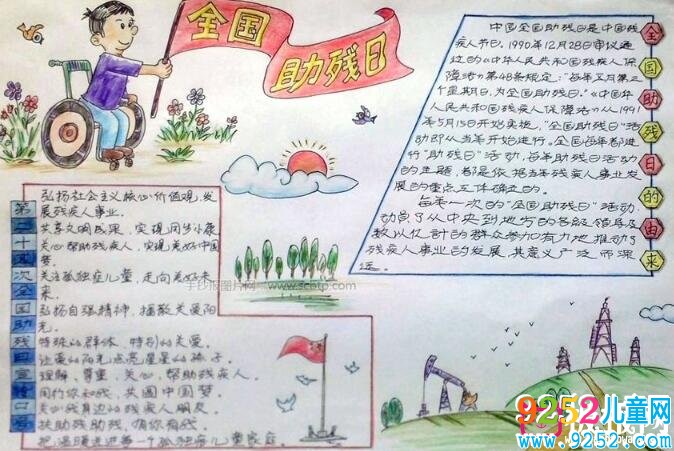 全国
助残日
全国助残日的由来
中国全国助残日是中国残
疾人节日。1990年12月28日审议通
过的《中华人民共和国残疾人保
障法》第48条规定："每年五月第三
个星期日,为全国助残日。"《中国华
人民共和国残疾人保障法》从1991
年5月15日开始实施,"全国助残日"活
动即从当年开始进行。全国每年都进
行"助残日"活动,每年助残日活动
的主题,都是依据当年残疾人事业发
展的重点工作确立的。
每年一次的"全国助残日"活动,
动员了从中央到地方的各级领导及
数以亿计的群众参加有力地推动了
残疾人事业的发展,其意义广泛而深
远。
第二十 次全国助残日宣传口号
弘扬社会主义核心价值观,发
展残疾人事业。
共享文明成果,实现同步小康
关心帮助残疾人,实现美好中国
梦。
关注孤独症儿童,走向美好未
来。
弘扬自强精神,播散关爱阳
光。
特殊的群体,特别的关爱。
让爱的阳光点亮星星的孩子。
理解、尊重、关心、帮助残疾人。
同行你和残,共圆中国梦。
关心我身边的残疾人朋友
扶助残助残,有你有我。
把温暖送进每一个孤独症儿童家庭。
手抄报图片网 www.scbtp.com
9252儿童网
www.9252.com